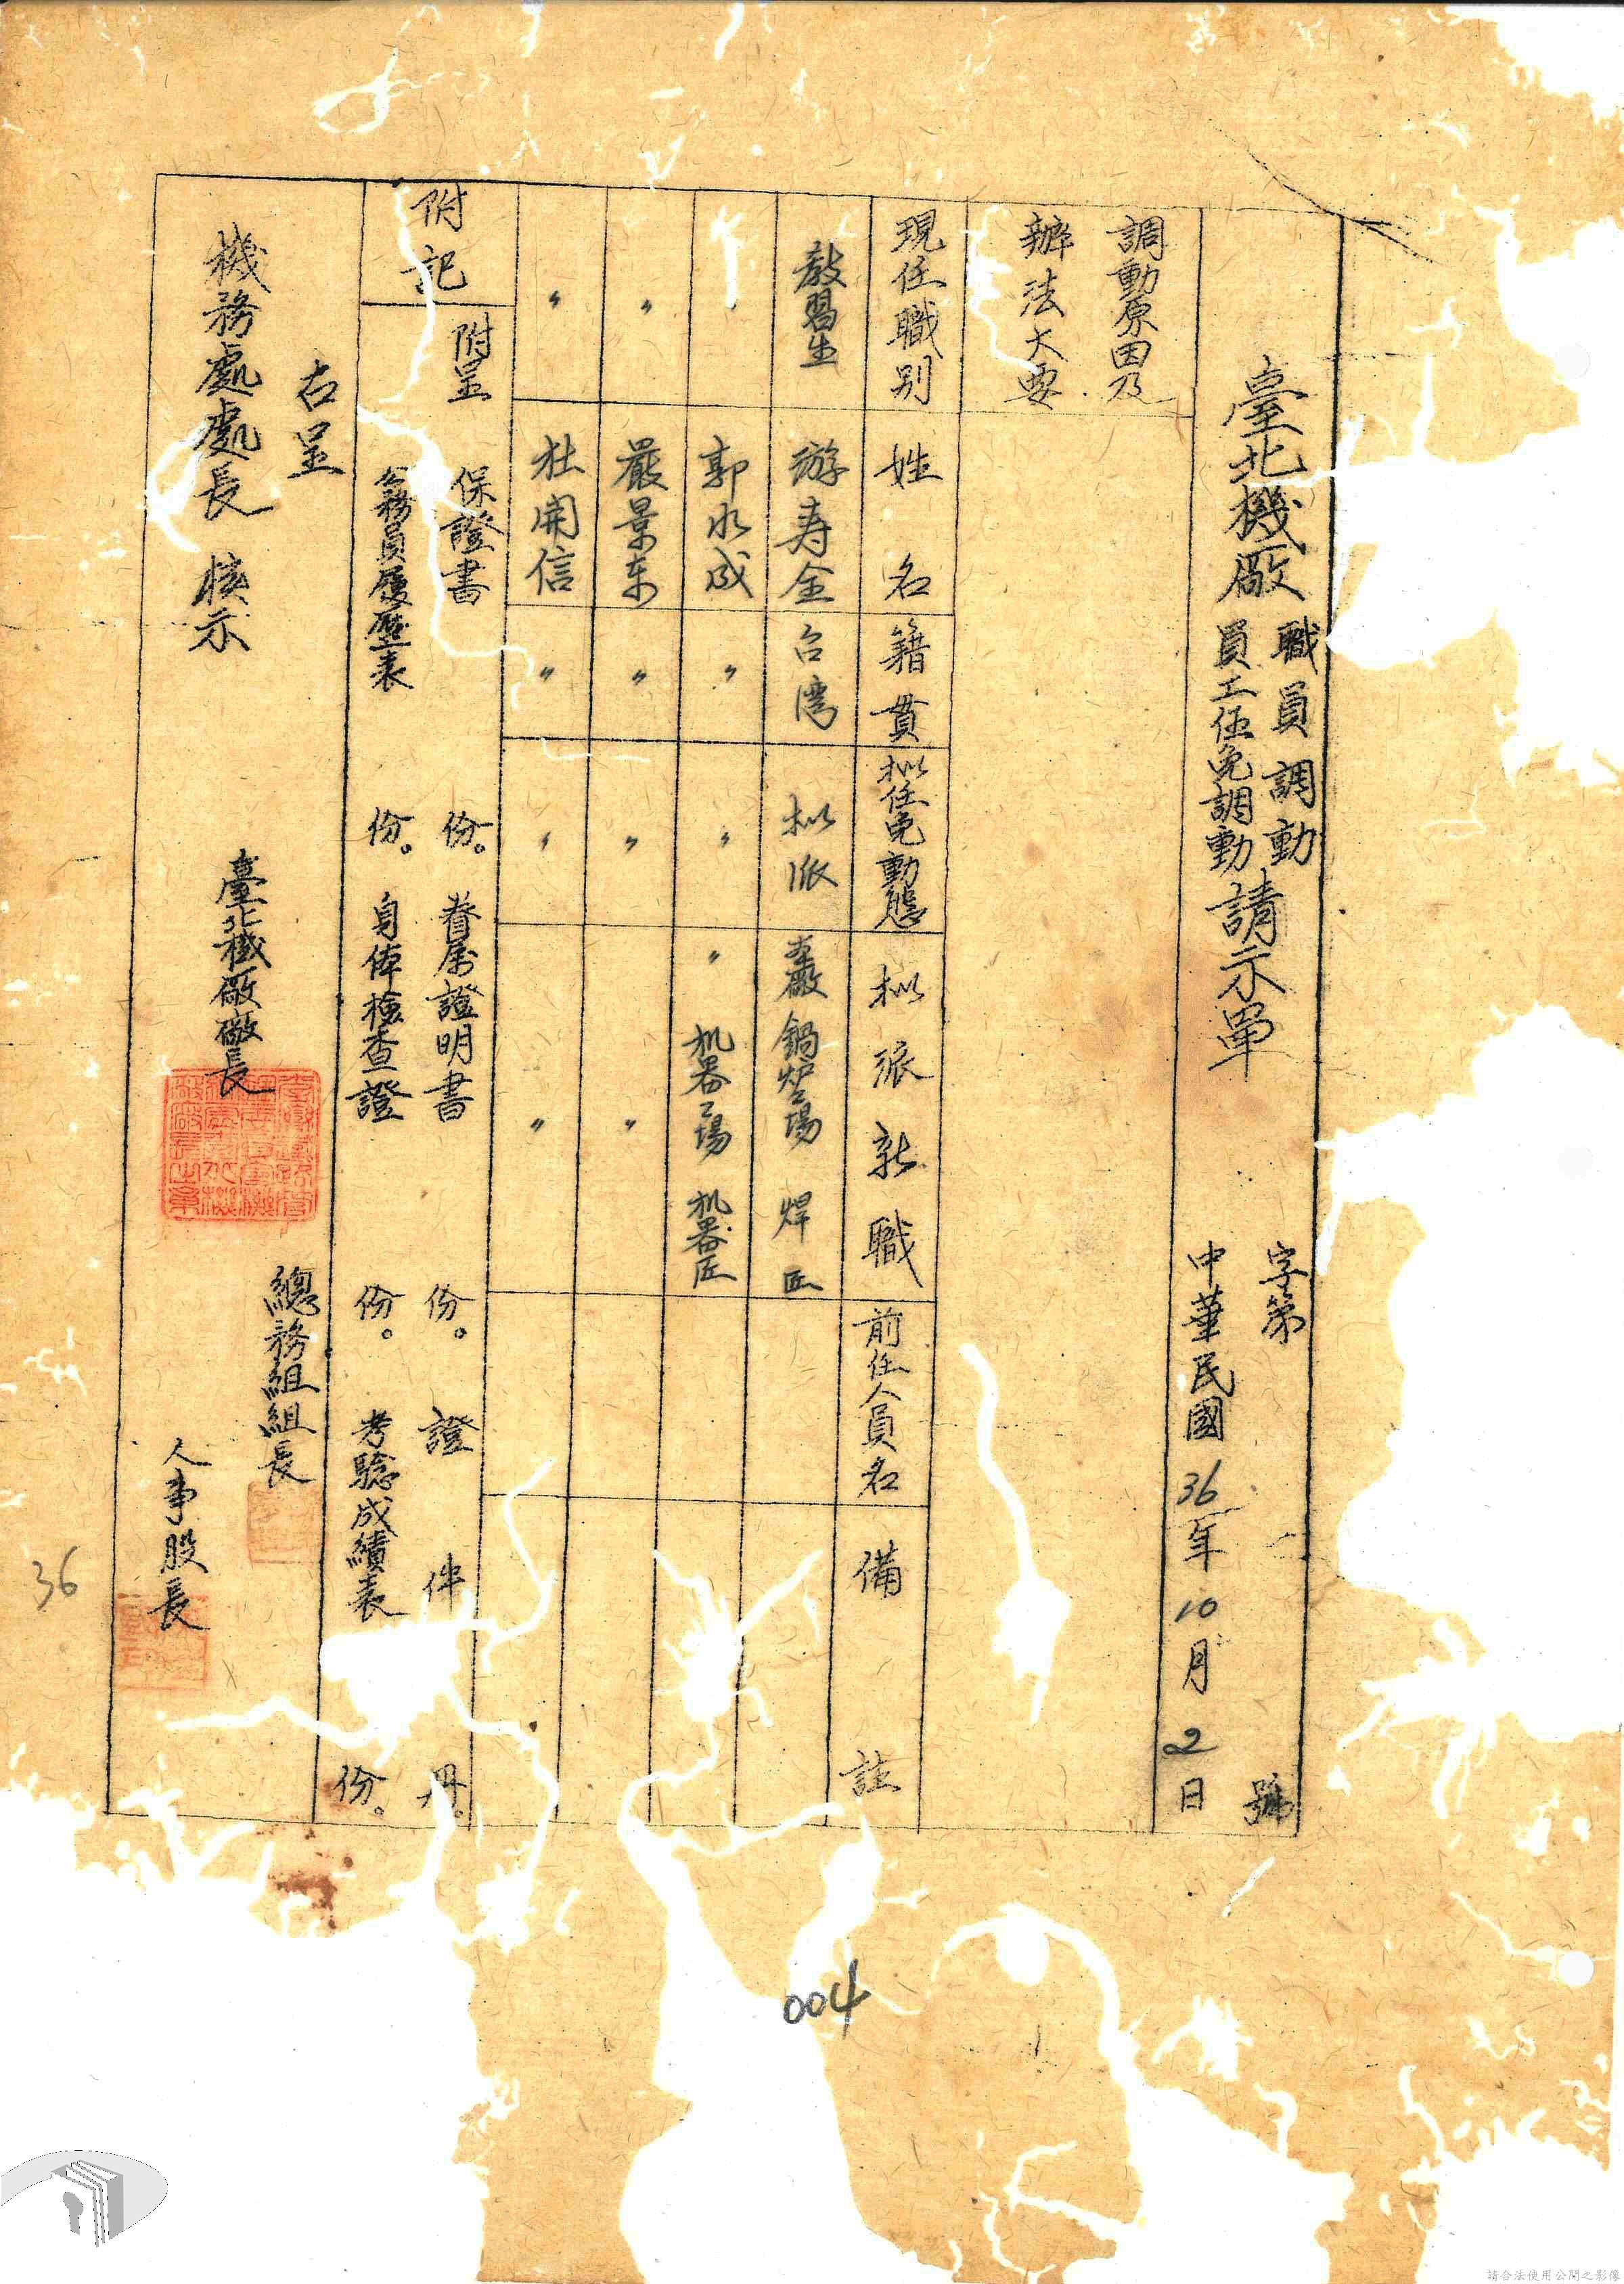 臺北機廠
職員調動
員工任免調動
請示單
字第 號
中華民國36年10月2日
調動原因及
辦法大要
現任職別 姓名 籍貫 擬任免動態 擬派新職 前任人員名 備註
教習生 游寿金 台湾 擬派 本廠鍋炉場 焊匠
〃 郭水成 〃 〃 〃 机器工場 机器匠
〃 嚴景东 〃 〃 〃
〃 杜開信 〃 〃 〃
附記
附呈 保證書 份。眷屬證明書 份。證件 冊。
公務員履歷表 份。身体檢查證 份。考驗成績表 份。
右呈
機務處處長 核示
臺北機廠廠長
總務組組長
人事股長
36
004
請合法使用公開之影像